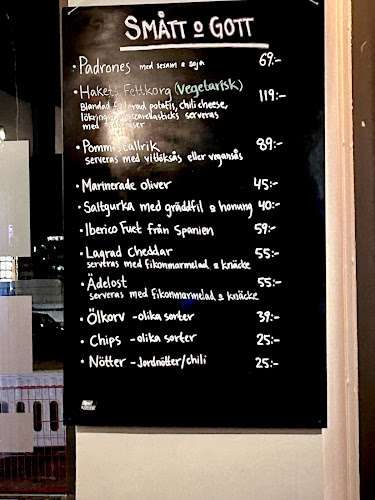 SMÅTT o GOTT
• Padrones med sesam & soja 69:-
• Hakets Fettkorg (Vegetarisk) 119:-
Blandad potatis, chilicheese,
serveras
med
• Pommestallrik 89:-
serveras med vitlöksås eller vegansås
• Marinerade oliver 45:-
• Saltgurka med gräddfil & honung 40:-
• Iberico Fuet från Spanien 59:-
• Lagrad Cheddar 55:-
serveras med fikonmarmelad & knäcke
• Ädelost 55:-
serveras med fikonmarmelad & knäcke
• Ölkorv - olika sorter 39:-
• Chips - olika sorter 25:-
• Nötter - Jordnötter/chili 25:-